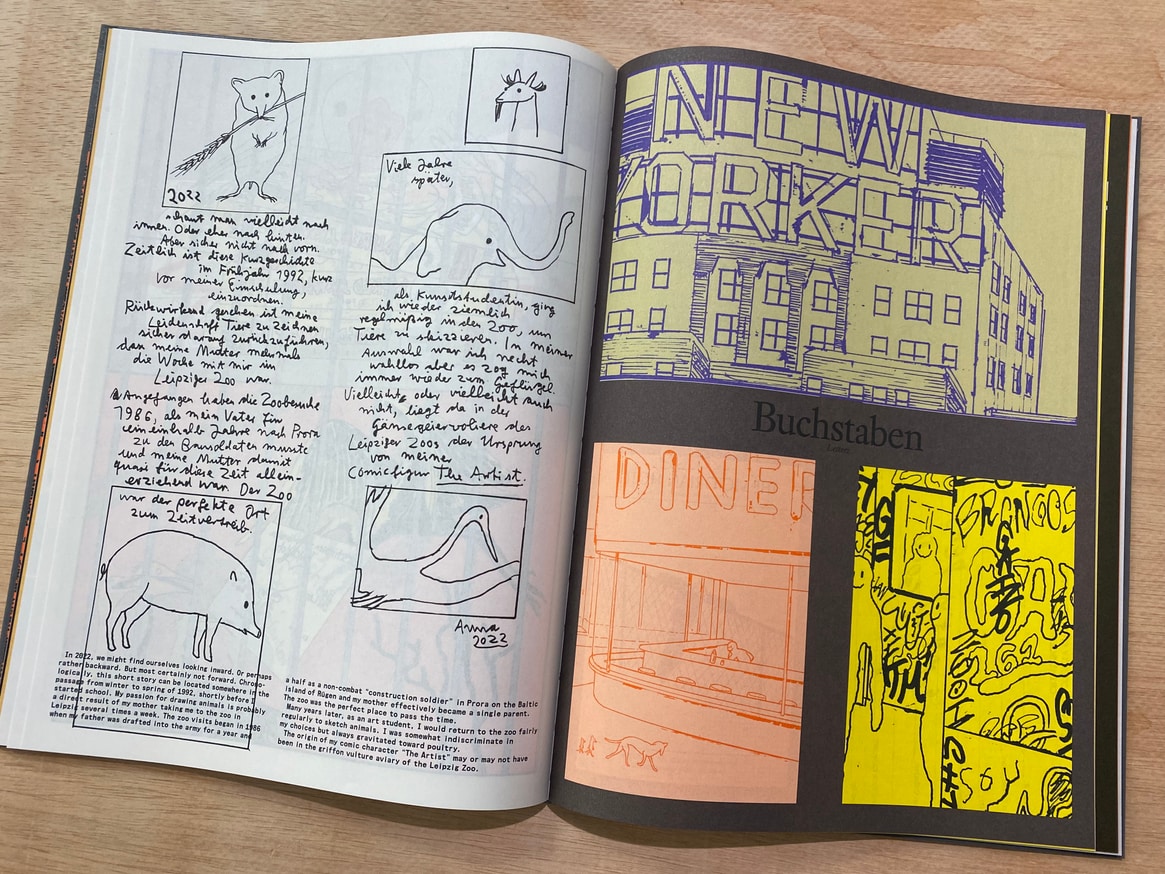 2022
schaut man vielleicht nach
innen. Oder eher nach hinten.
Aber sicher nicht nach vorn.
Zeitlich ist diese Kurzgeschichte
im Frühjahr 1992, kurz
vor meiner Einschulung,
einzuordnen.
Rückwirkend gesehen ist meine
Leidenschaft Tiere zu zeichnen
sicher darauf zurückzuführen,
dass meine Mutter mehrmals
die Woche mit mir im
Leipziger Zoo war.
Angefangen haben die Zoobesuche
1986, als mein Vater für
ein einhalb Jahre nach Prora
zu den Bausoldaten musste
und meine Mutter damit
quasi für diese Zeit allein-
erziehend war. Der Zoo
war der perfekte Ort
zum Zeitvertreib.
Viele Jahre
später,
als Kunststudentin, ging
ich wieder ziemlich
regelmäßig in den Zoo, um
Tiere zu skizzieren. In meiner
Auswahl war ich recht
wahllos aber es zog mich
immer wieder zum Geflügel.
Vielleicht, oder vielleicht auch
nicht, liegt da in der
Gänsegeiervoliere des
Leipziger Zoos der Ursprung
von meiner
Comicfigur The Artist.
Anna
2022
In 2022, we might find ourselves looking inward. Or perhaps
rather backward. But most certainly not forward. Chrono-
logically, this short story can be located somewhere in the
passage from winter to spring of 1992, shortly before I
started school. My passion for drawing animals is probably
a direct result of my mother taking me to the zoo in
Leipzig several times a week. The zoo visits began in 1986
when my father was drafted into the army for a year and
a half as a non-combat "construction soldier" in Prora on the Baltic
island of Rügen and my mother effectively became a single parent.
The zoo was the perfect place to pass the time.
Many years later, as an art student, I would return to the zoo fairly
regularly to sketch animals. I was somewhat indiscriminate in
my choices but always gravitated toward poultry.
The origin of my comic character "The Artist" may or may not have
been in the griffon vulture aviary of the Leipzig Zoo.
NEW
YORKER
Buchstaben
Letters
DINER